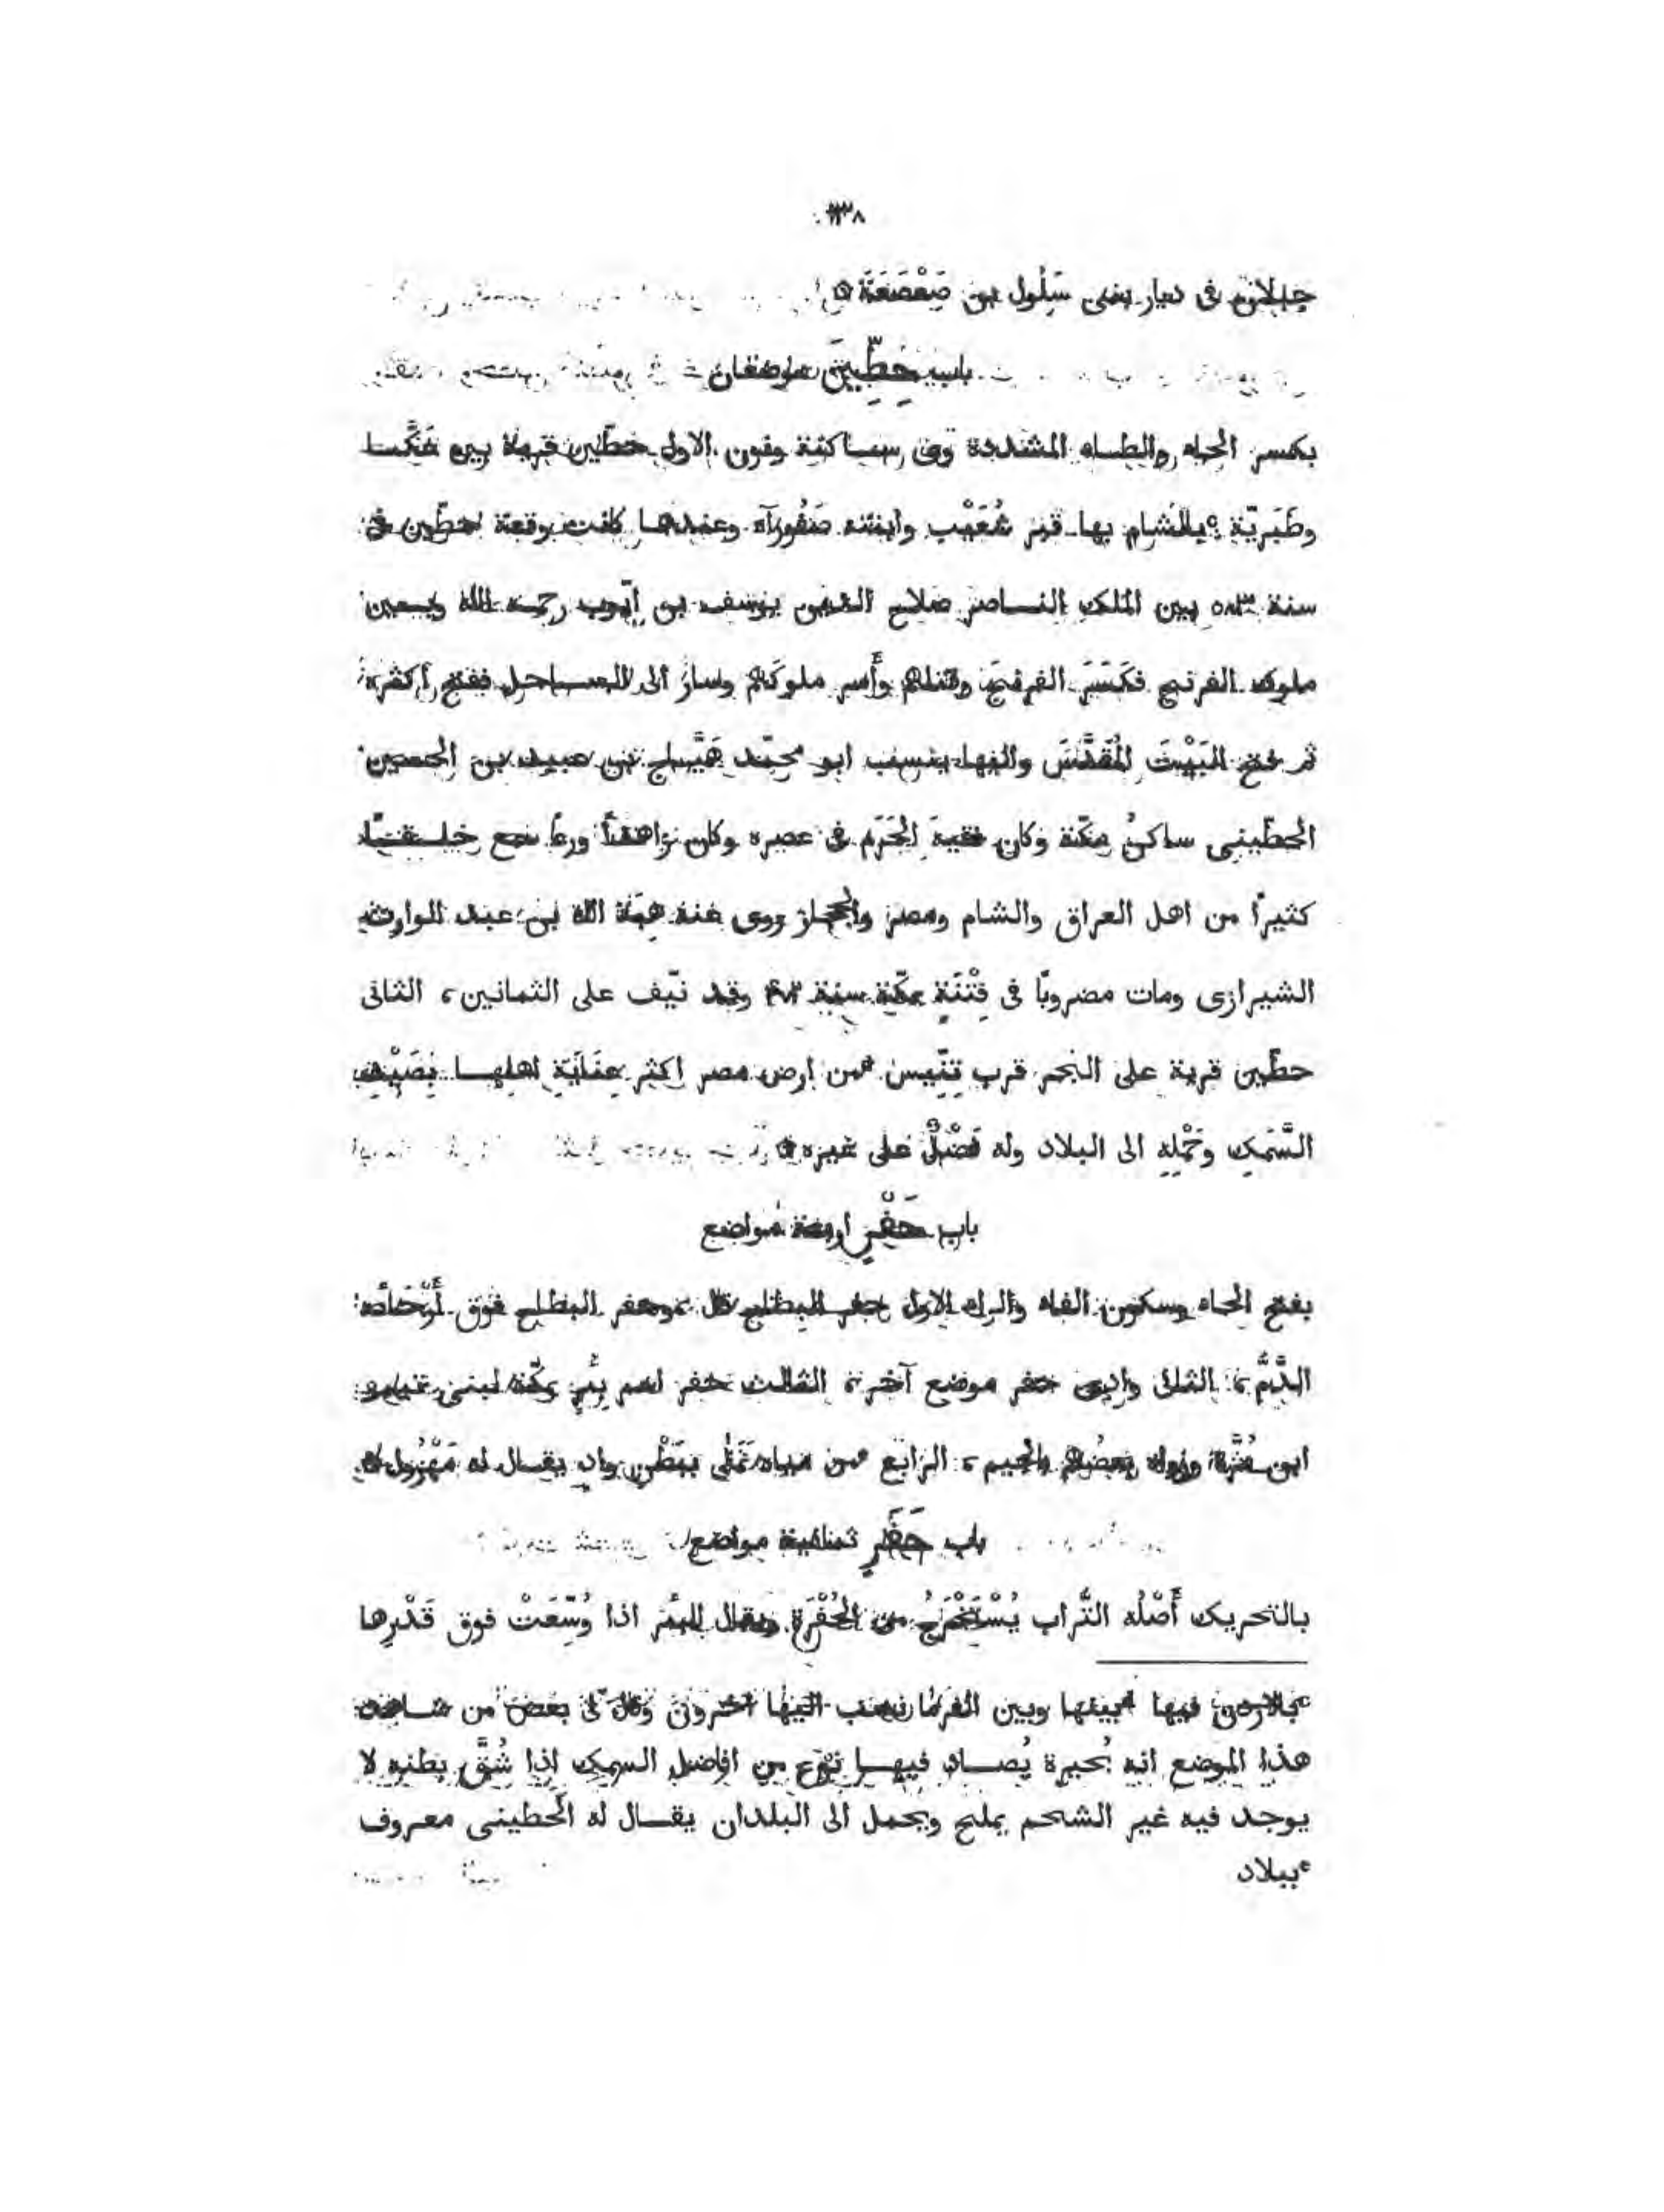 ١٣٨
جبلان في ديار بنى سَلُول بن صَعْصَعَةَ ۞
باب حِطِّينَ موضعان
بكسر الحاء والطاء المشددة وياء ساكنة ونون الاول حطّين قرية بين عَكَّا
وطَبَريّة بالشام بها قبر شُعَيْب وابنته صَفُورآء وعندها كانت وقعة حطّين في
سنة ٥٨٣ بين الملك الناصر صلاح الدين يوسف بن ايّوب رحمه الله وبين
ملوك الفرنج فكَسَرَ الفرنجَ وقتلهم وأسر ملوكَهم وسار الى الساحل ففتح اكثره
ثم فتح البَيْتَ المُقَدَّسَ واليها ينسب ابو محمّد هَيَّاج بن عبيد بن الحسين
الحطّينى ساكنُ مكّة وكان فقيهَ الحَرَم في عصره وكان زاهدًا ورعًا سمع خلقًا
كثيرًا من اهل العراق والشام ومصر والحجاز روى عنه هبة الله بن عبد الوارث
الشيرازى ومات مضروبًا في فِتْنَةٍ بمكّة سنة وقد نيّف على الثمانين، الثانى
حطّين قرية على البحر قرب تِنِّيس من ارض مصر اكثر عنَايَة اهلها بصَيْد
السَّمَكِ وحَمْلِهِ الى البلاد وله فَضْلٌ على غيره ۞
باب حَفْرٍ اربعة مواضع
بفتح الحاء وسكون الفاء والراء الاول حفر البطاح قال وحفر البطاح فوق أَرْجَائه
الدَّمُ، الثانى وادى حفر موضع آخر، الثالث حفر اسم بِئْرٍ بمكّة لبنى تيم
ابن مُرَّة ورواه بعضُهم بالجيم، الرابع من مياه نَمَلَى ببَطْن وادٍ يقال له مَهْزُول ۞
باب حَفَرٍ ثمانية مواضع
بالتحريك أَصْلُه التُّراب يُسْتَخْرَجُ من الحُفْرَة ويقال للبئر اذا وُسّعَتْ فوق قَدْرِها
بالاردن فيها بينها وبين الفرما ينسب اليها آخرون وقال لى بعض من شاهد
هذا الموضع انه بُحيرة يُصاد فيها نوع من افاضل السمك اذا شُقَّ بطنه لا
يوجد فيه غير الشحم يملح ويحمل الى البلدان يقال له الحطينى معروف
ببلاد